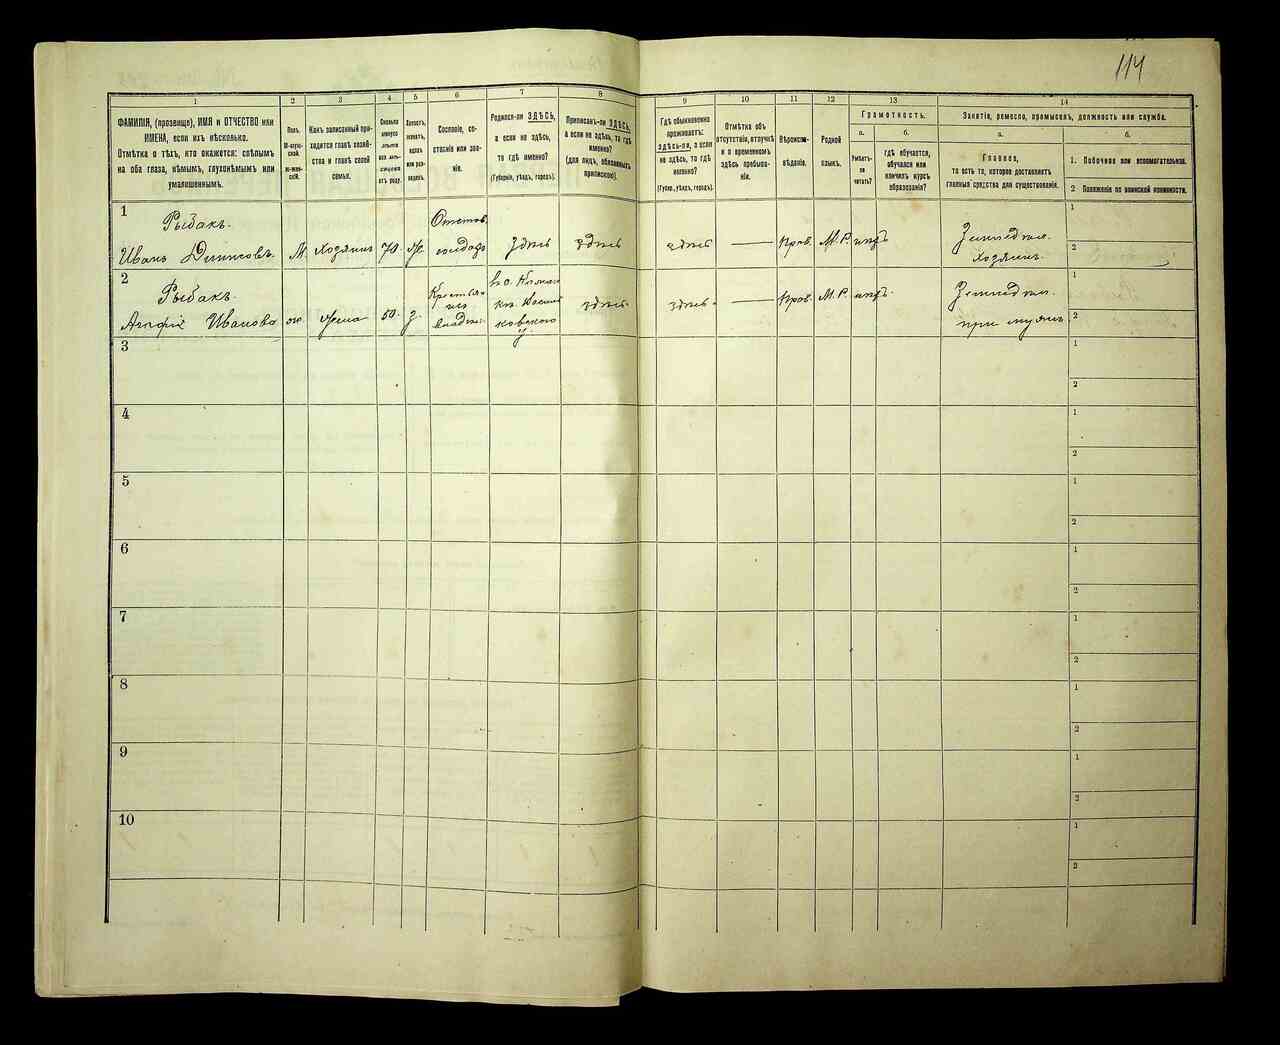 114
1 2 3 4 5 6 7 8 9 10 11 12 13 14
ФАМИЛІЯ, (прозвище), ИМЯ и ОТЧЕСТВО или
ИМЕНА, если ихъ нѣсколько.
Отмѣтка о тѣхъ, кто окажется: слѣпымъ
на оба глаза, нѣмымъ, глухонѣмымъ или
умалишеннымъ.
Полъ.
М-муж-
ской.
ж-жен-
скій.
Какъ записанный при-
ходится главѣ хозяй-
ства и главѣ своей
семьи.
Сколько
минуло
лѣтъ
или мѣ-
сяцевъ
отъ роду.
Холостъ,
женатъ,
вдовъ
или раз-
веденъ.
Сословіе, со-
стояніе или зва-
ніе.
Родился-ли ЗДѢСЬ,
а если не здѣсь,
то гдѣ именно?
(Губернія, уѣздъ, городъ).
Приписанъ-ли ЗДѢСЬ,
а если не здѣсь, то гдѣ
именно?
(для лицъ, обязанныхъ
припискою).
Гдѣ обыкновенно
проживаетъ:
здѣсь-ли, а если
не здѣсь, то гдѣ
именно?
(Губер., уѣздъ, городъ).
Отмѣтка объ
отсутствіи, отлучкѣ
и о временномъ
здѣсь пребыва-
ніи.
Вѣроиспо-
вѣданіе.
Родной
языкъ.
Грамотность.
а. б.
Умѣетъ-
ли
читать?
гдѣ обучается,
обучался или
кончилъ курсъ
образованія?
Занятіе, ремесло, промыселъ, должность или служба.
а. б.
Главное,
то есть то, которое доставляетъ
главныя средства для существованія.
1. Побочное или вспомогательное.
2 Положеніе по воинской повинности.
1
Рыбакъ.
Иванъ Денисовъ. М. Хозяинъ 70. Отстав. солдатъ здѣсь здѣсь здѣсь Прав. М.Р. нѣтъ Земледѣл. Хозяинъ.
1
2
2
Рыбакъ.
Агафія Иванова ж. жена 50. з. Крестьян- здѣсь. здѣсь. Прав. М.Р. нѣтъ. Земледѣл. при мужѣ.
1
2
3
1
2
4
1
2
5
1
2
6
1
2
7
1
2
8
1
2
9
1
2
10
1
2